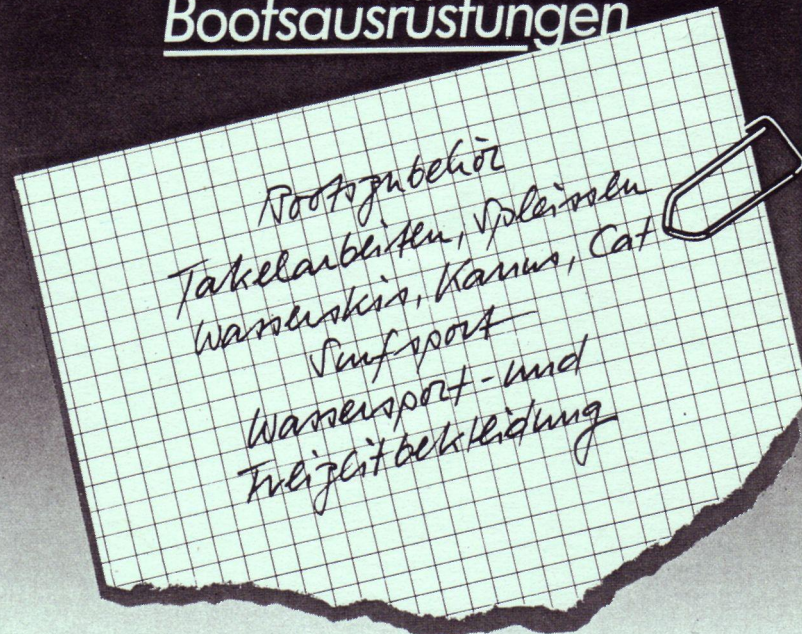 Bootsausrüstungen
Bootszubehör
Takelarbeiten, Spleissen
Wasserskis, Kanus, Cat
Surfsport
Wassersport- und
Freizeitbekleidung